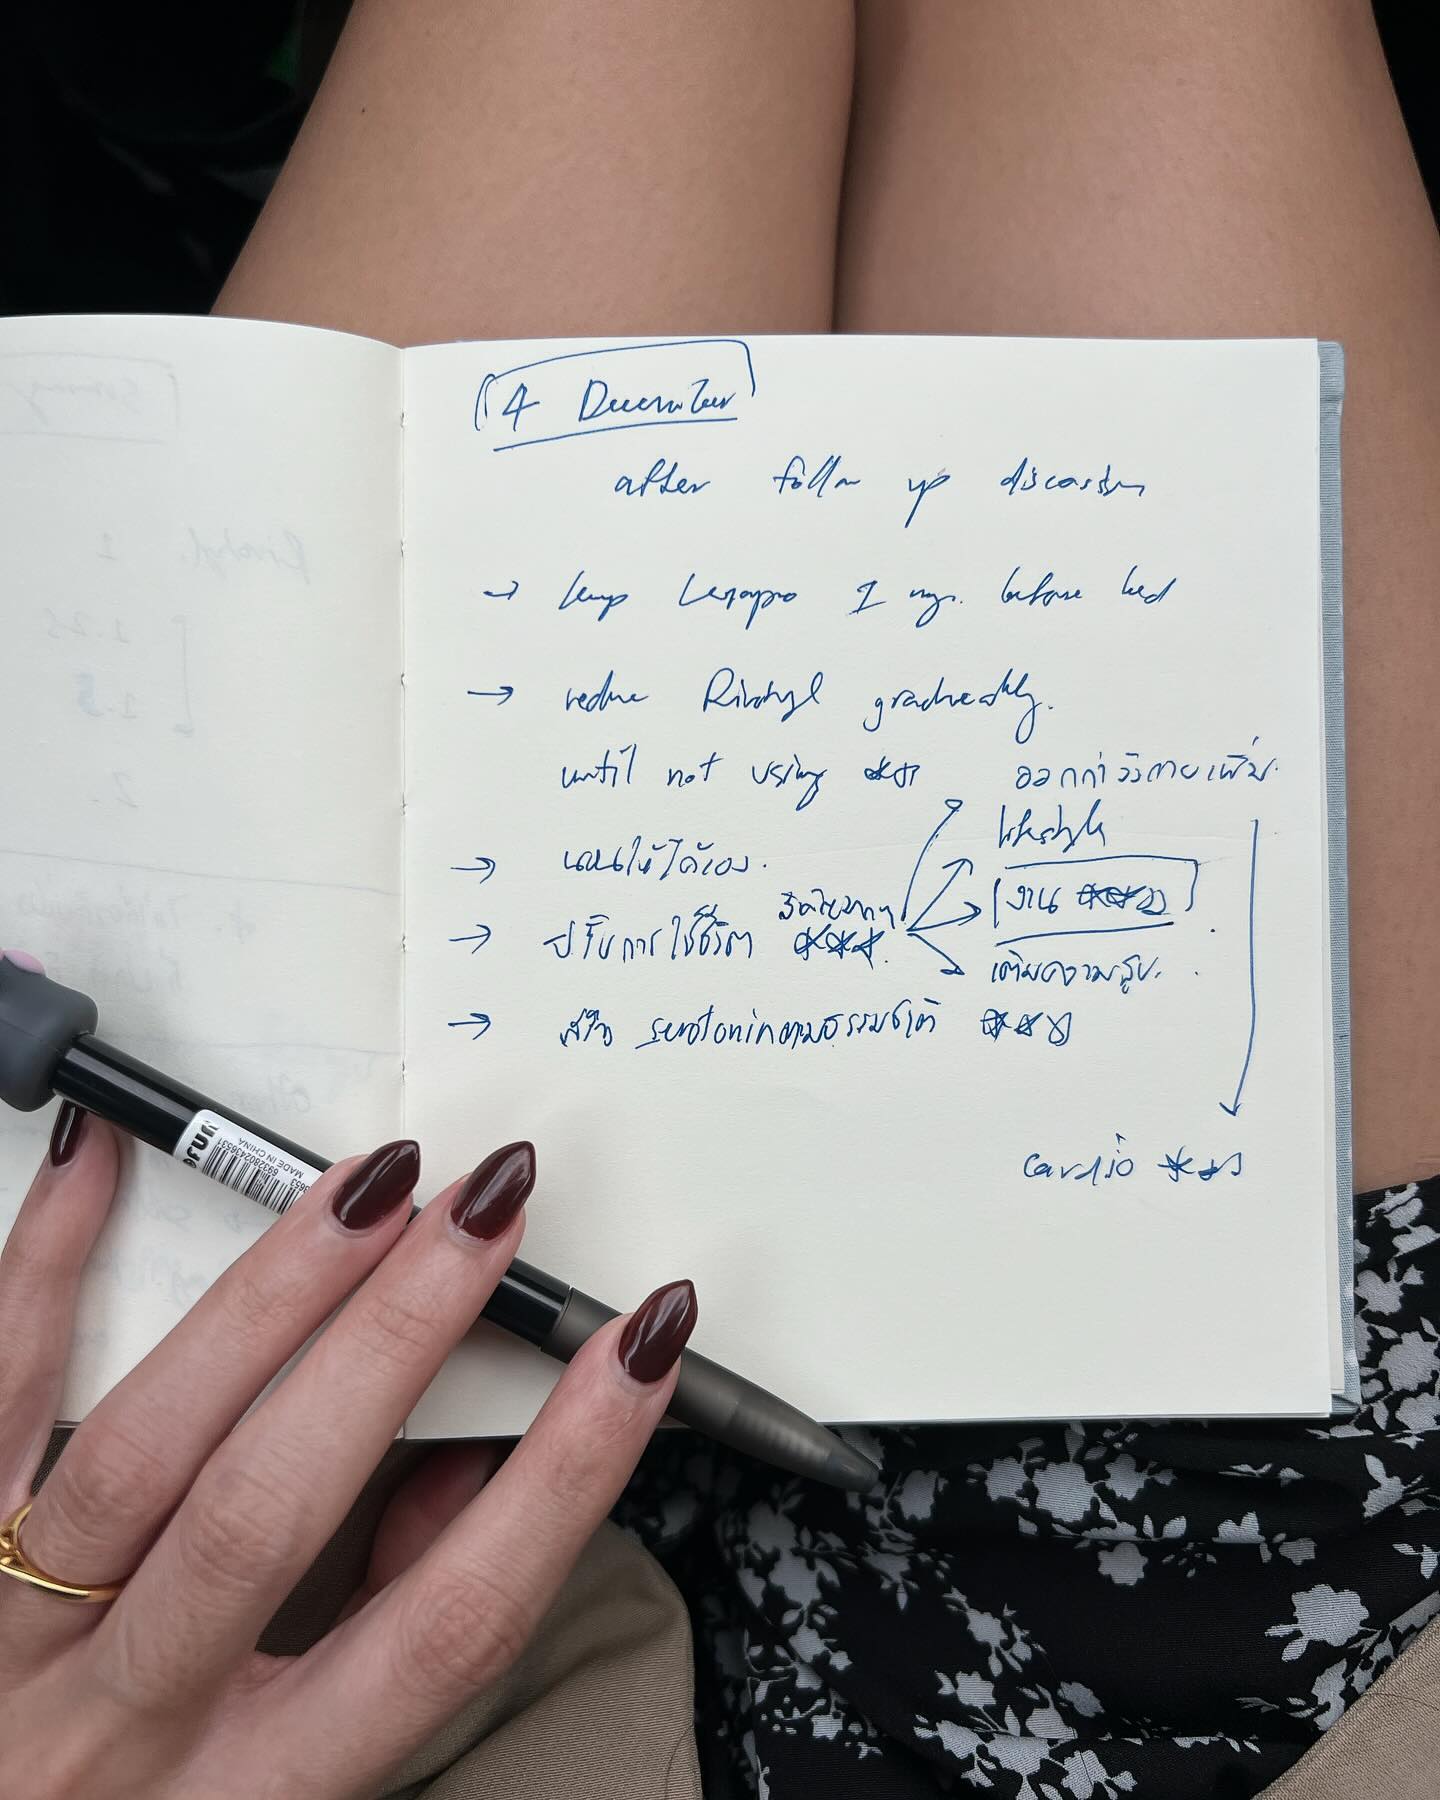 4 December
after follow up discussion
→ keep Lexapro 1 mg. before bed
→ reduce Rivotryl gradually.
until not using
ออกกำลังกายเพิ่ม
lifestyle
→ นอนให้ได้เอง.
งาน
→ ปรับการใช้ชีวิต
เติมความสุข.
→ สร้าง serotonin ตามธรรมชาติ
cardio
MADE IN CHINA
6932802436531
Rivotryl.
1
1.25
1.5
2